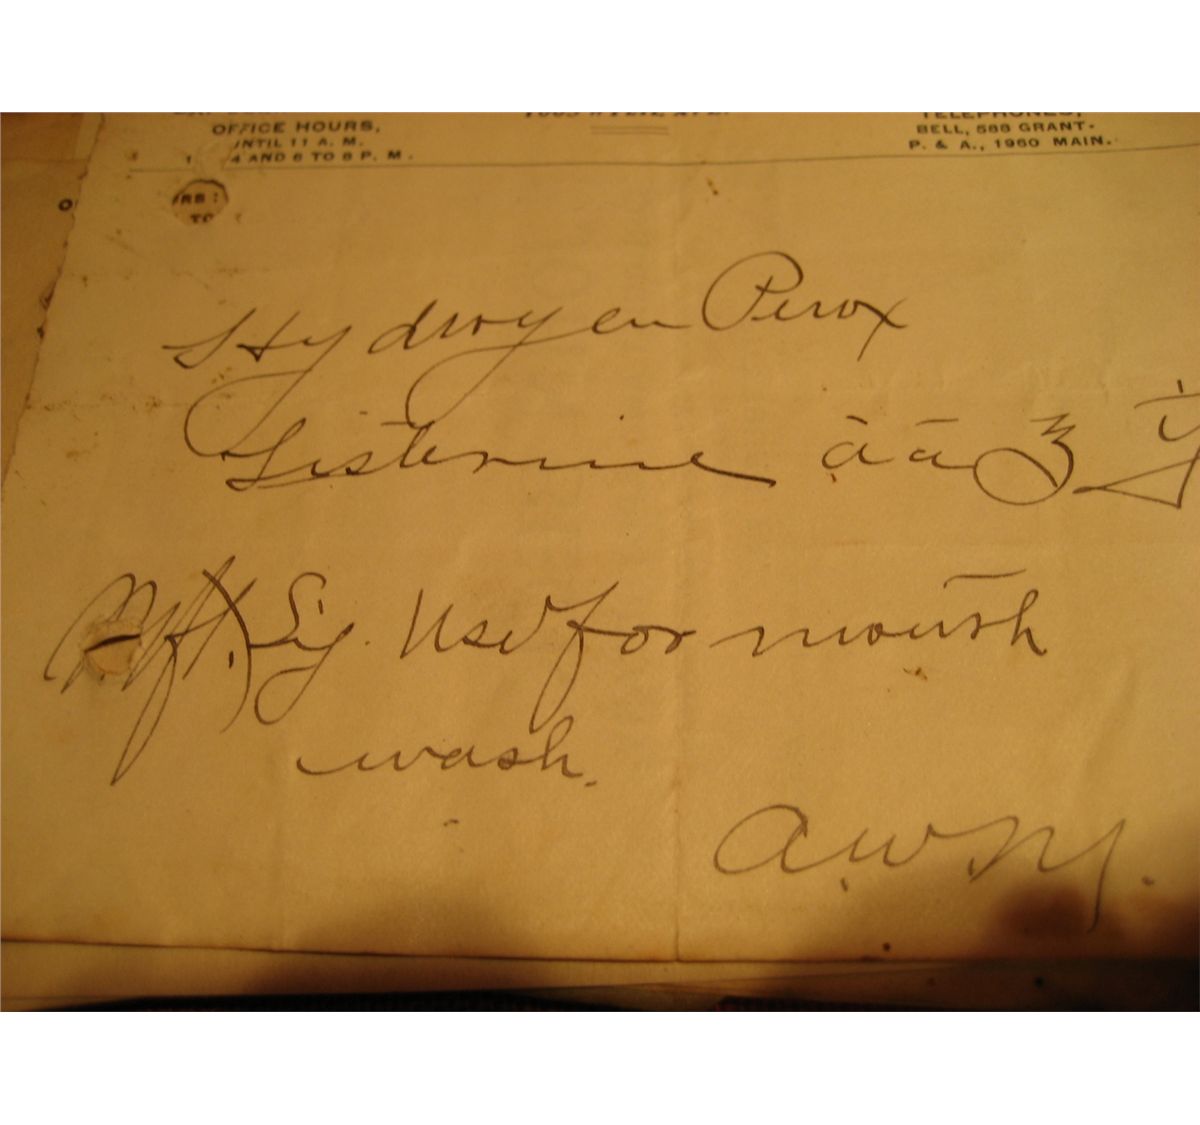 OFFICE HOURS,
UNTIL 11 A. M.
1 4 AND 6 TO 8 P. M.
TELEPHONES,
BELL, 588 GRANT.
P. & A., 1960 MAIN.
RS:
TO
Hydrogen Perox
Listerine āā ℥
M. ft.) Sig. Use for mouth
wash.
A.W.M.